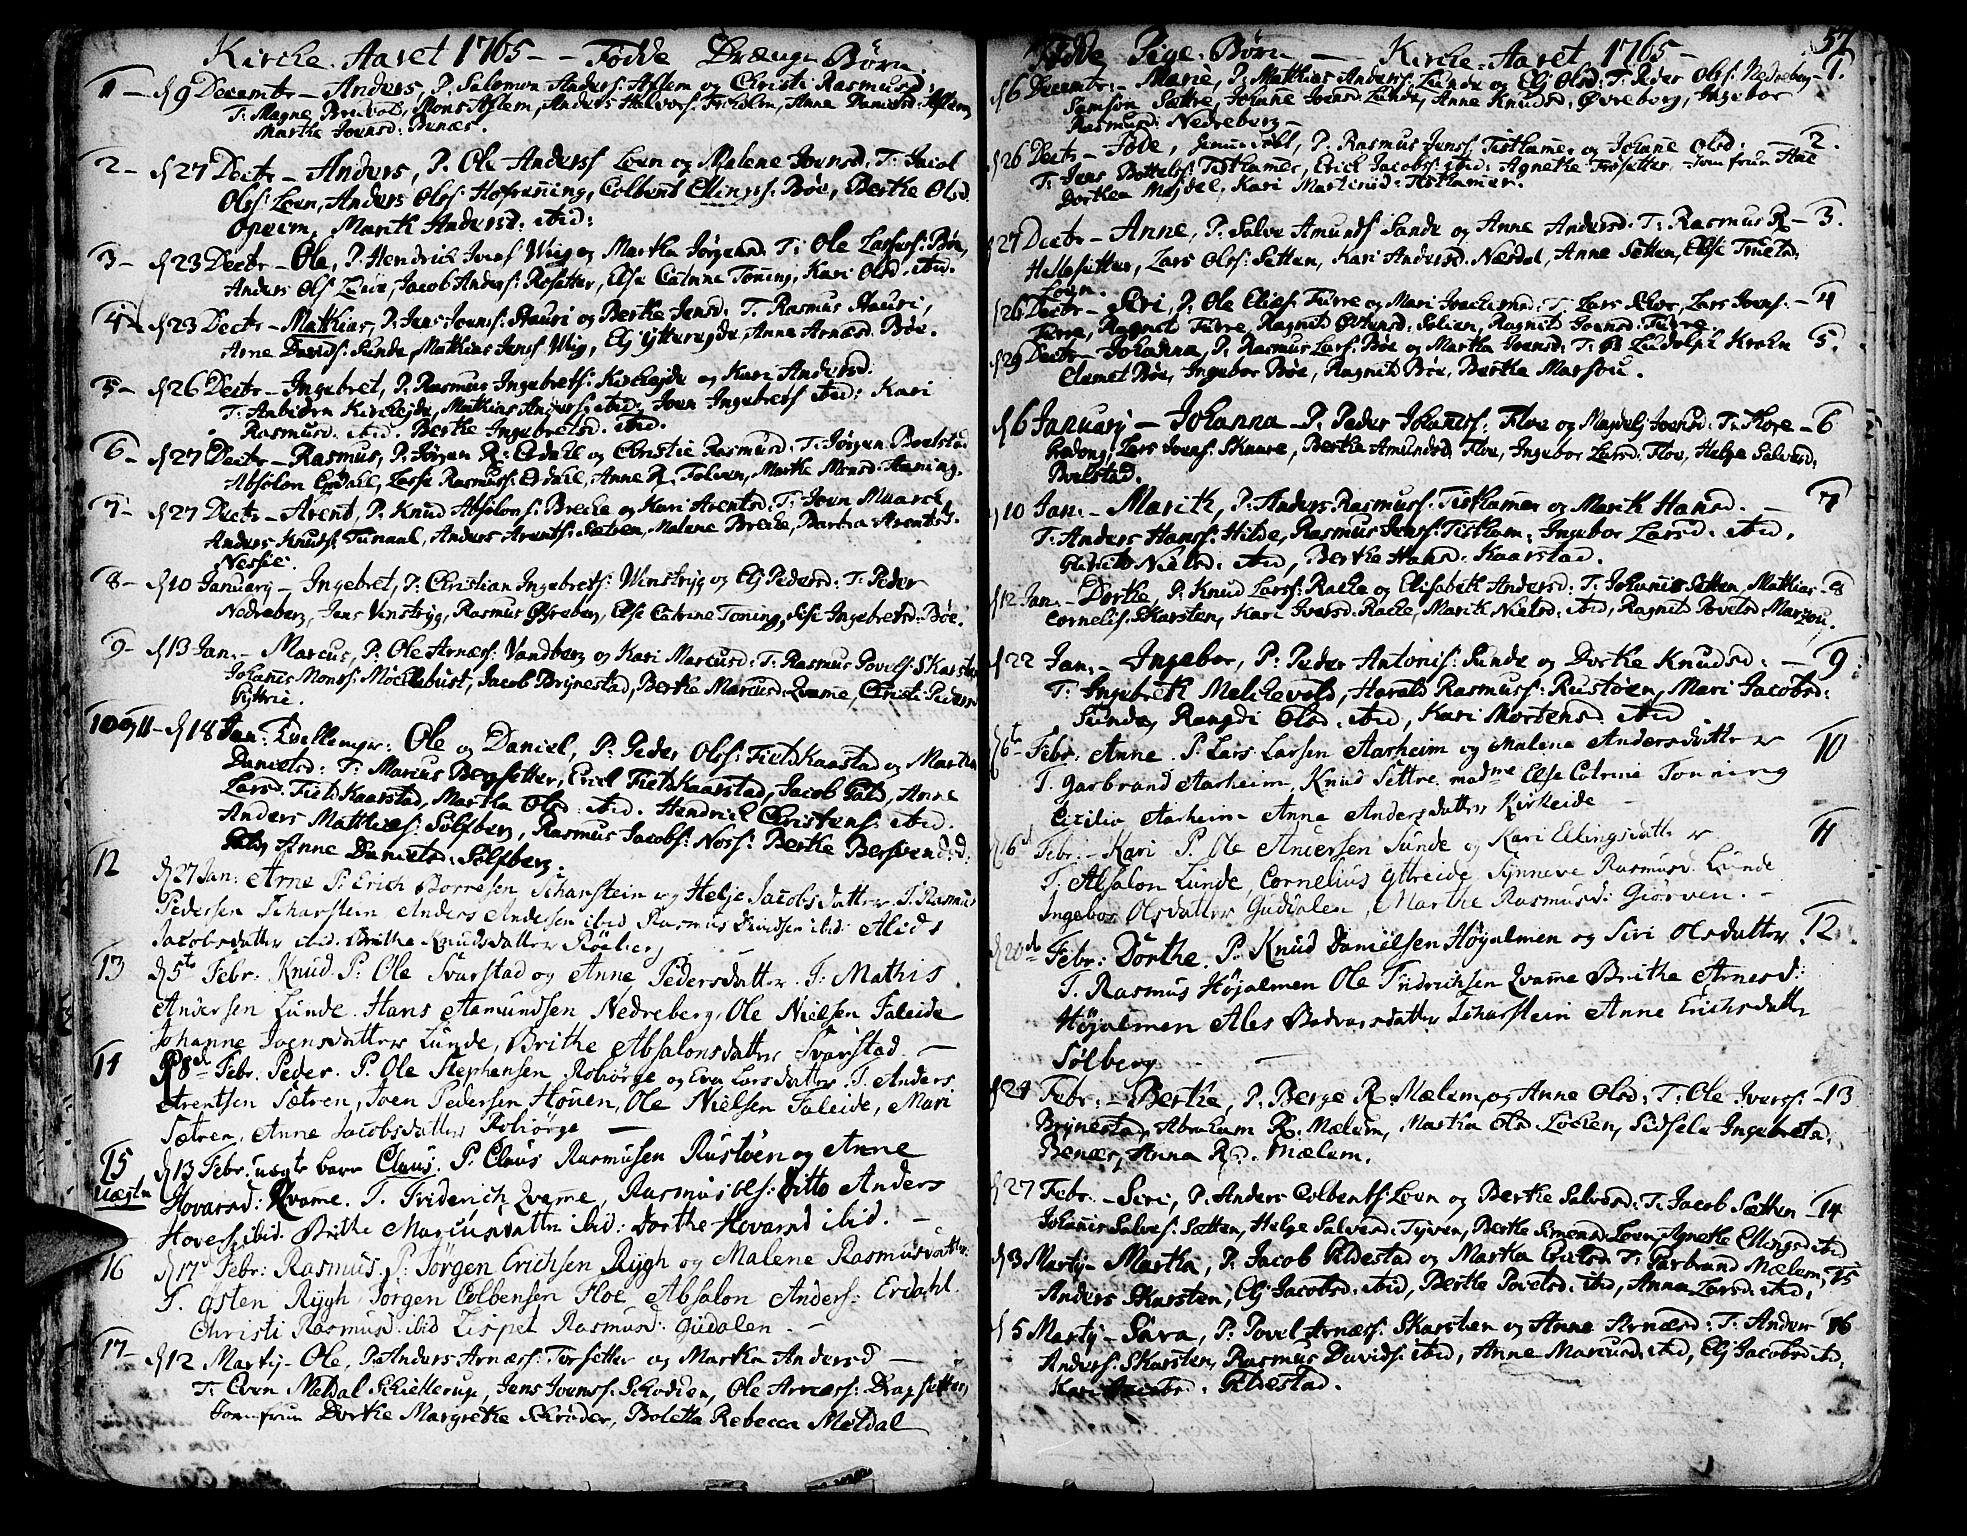 Kirche-Aaret 1765 - - Fødde Drænge Børn.
1 - d 9 Decembr - Anders, P. Salomon Anders: Aflem og Christi Rasmusd:
T: Magne Bredvold, Mons Aflem, Anders Halvors: Anne Daniels: Aflem
Marthe Joensd: Benæs.
2 - d 27 Decbr - Anders, P. Ole Anderss Loen og Malene Joensd: T: Jacob
Olss: Loen, Anders Olss: Hofræning, Colbent Ellingss: Bøe, Berthe Olsd
Opheim, Marith Andersd. ibid:
3 - d 23 Decbr - Ole, P. Hendrich Wiig og Martha Jørgensd. T: Ole Larss: Bøe,
Anders Olss Jacob Anderss: Rosetter, Else Catrine Toning, Kari Olsd. ibid.
4 - d 23 Decbr - Mathias, P. Jens Joenss: Stauri og Berthe Jensd. T. Rasmus Stauri,
Arne Davids: Sunde, Mathias Jenss Wiig, Elj Ytterejde, Anne Arnæsd. Bøe.
5 - d 26 Decbr - Ingebret, P. Rasmus Ingebretss: Kirchejde og Kari Andersd.
T: Anbiørn Kirchejde, Mathias Anderss: ibid: Joen Ingebretss ibid: Kari
Rasmusd. ibid. Berthe Ingebretsd. ibid.
6 - d 27 Decbr - Rasmus, P. Jørgen R: Erdahl og Christie Rasmusd: T. Jørgen Boelstad
Absolon Erdahl, Lasse Rasmuss: Erdahl, Anne R. Tolven, Marthe Monsd: Haning.
7 - d 27 Decbr - Arent, P. Knud Absolons: Breche og Kari Arentsd: T: Joen Muarch
Anders Knuds: Tunaal, Anders Arentss: Sætren, Malene Breche, Barbra Arentsd.
Nessie.
8 - d 10 Januarij - Ingebret, P: Christian Ingebretss: Winstryg og Elj Pedersd: T: Peder
Nedreberg, Jens Vinstryg, Rasmus Øfreberg, Else Catrine Toning, Sisi Ingebretsd: Bøe.
9 - d 13 Jan. - Marcus, P: Ole Arnæss: Vandberg og Kari Marcusd: T: Rasmus Povels: Skarsten
Johanis Monss: Mochlebust, Jacob Brynestad, Berthe Marcusd: Qvame, Christi Pedersd
Gyttrie.
10 og 11 - d 18 Jan: Tvillinger: Ole og Daniel, P: Peder Olss: Field Kaarstad og Martha
Danielsd: T: Marcus Bergsetter, Erich Field Kaarstad, Jacob Gald, Anne
Larsd. Field Kaarstad, Martha Olsd. ibid. Hendrich Christens: ibid.
Anders Matthiæs: Sølfberg, Rasmus Jacobs: Noss: Berthe
Gald, Anne Danielsd: Sølfberg.
12 d 27 Jan: Arne P: Erich Borresen Scharstein og Helje Jacobsdatter T. Rasmus
Pedersen Scharstein Anders Andersen ibid Rasmus Davidsen ibid: Alids
Jacobsdatter ibid. Brithe Knudsdatter Roeberg
13 d 5te Febr: Knud. P: Ole Svarstad og Anne Pedersdatter. T: Mathis
Andersen Lunde. Hans Aamundsen Nedreberg, Ole Nielsen Faleide
Johanne Joensdatter Lunde, Brithe Absalonsdatter Svarstad. -
14 d 8de Febr. Peder. P. Ole Stephensen Robiørge og Eva Larsdatter T. Anders
Arentsen Sætren, Joen Pedersen Houen, Ole Nielsen Faleide, Mari
Sætren, Anne Jacobsdatter Robiørge -
15 Uægte d 13 Febr. uægte barn Claus. P. Claus Rasmusen Rustøen og Anne
Hovarsd: Qvame. T. Friderich Qvame, Rasmus Ols: Ditto Anders
Hovers: ibid. Brithe Marcusdatter ibid: Dorthe Hovarsd ibid. -
16 d 17d Febr: Rasmus. P. Jørgen Erichsen Rygh og Malene Rasmusdatter
T. Østen Rygh Jørgen Colbensen Floe Absalon Anders: Erdahl.
Christi Rasmusd. ibid Lispet Rasmusd: Gudalen -
17 - d 12 Martij - Ole, P. Anders Arnæss: Torsetter og Martha Andersd -
T: Even Meldal Schielterup, Jens Joenss: Schodien, Ole Arnæss: Dragsetter
Jomfrun Dorthe Margrethe Schrøder, Boletta Rebecca Meldal
57
Fødde Pige-Børn - Kirche-Aaret 1765 -
d 6 Decembr: - Marie, P. Mathias Anders: Lunde og Elj Olsd: T: Peder Olss: Nedreberg - 1.
Samson Sættre, Johane Joensd: Lunde, Anne Knudsd: Øvreberg, Ingebor
Rasmusd: Nedreberg -
d 26 Decbr - P. Rasmus Jenss: Tisthamer og Johane Olsd: - 2.
T: Jens Bottelss: Tisthamer, Erich Jacobss: ibid: Agnethe Frøsetter - Jomfrun Ane
Dorthea Mejdel, Kari Martinsd: Tisthamer.
d 27 Decbr - Anne, P. Salve Amunds Sande og Anne Andersd: T: Rasmus R - 3.
Hellesetter, Lars Olss: Setten, Kari Andersd: Nærdal, Anne Setten, Else Truelsd
Loen.
d 26 Decbr - Siri, P. Ole Elias: Furre og Mari Joachimsd: T: Lars Schor, Lars Joenss: - 4
Furre, Ragnet Furre, Ragnet Solien, Ragnet Joensd: Furre
d 29 Decbr - Johanna, P. Rasmus Larss: Bøe og Martha Joensd: T: Ludolph Krohn 5.
Clemet Bøe, Ingebor Bøe, Ragnet Bøe, Berthe Marstou.
d 6 Januarij - Johanna - P. Peder Johaness: Floe og Magdelj Joensd: T: Thore - 6
Grodong, Lars Joenss: Skaare, Berthe Amundsd Floe, Ingebor Larsd: Floe, Helge Salvesd:
Boelstad.
d 10 Jan. - Marith, P. Anders Rasmuss: Tisthamer og Marith Hansd. - 7
T: Anders Hanss: Hilde, Rasmus Jenss: Tistham, Ingebor Larsd. ibid.
Nielsd. ibid, Berthe Hansd: Kaarstad.
d 12 Jan. - Dorthe, P. Knud Larss: Rache og Elisabeth Andersd: T: Johanis Setten, Mathias - 8
Cornelis: Skarsten, Kari Iversd: Rache, Marith Nielsd: ibid, Ragnet Povelsd Marzou.
d 22 Jan. - Ingebor, P. Peder Antonis: Sunde og Dorthe Knudsd: - 9
T: Ingebreth Melchevold, Harald Rasmuss: Rustøen, Mari Jacobsd:
Sunde, Rangdi Olsd. ibid, Kari Mortensd. ibid
d 6te Febr: Anne P. Lars Larsen Aarheim og Malene Andersdatter 10
T. Garbrand Aarheim, Knud Settre madme Else Cotrine Tonning
Cicilia Aarheim Anne Andersdatter Kirkeide -
d 6d Febr. - Kari P. Ole Andersen Sunde og Kari Ellingsdatter 11
T. Absalon Lunde, Cornelius Yttreide Synneve Rasmusd Lunde
Ingebor Olsdatter Gudalen, Marthe Rasmusd: Giørven. -
d 20de Febr: Dorthe. P. Knud Danielsen Høyalmen og Siri Olsdatter 12
T. Rasmus Høyalmen Ole Fridrichsen Qvame Brithe Arnesd:
Høyalmen Ales Bodvarsdatter Scharstein Anne Erichsdatter
Sølberg -
d 24 Febr. - Berthe, P. Berge R. Mælem, og Anne Olsd: T: Ole Ivers: - 13
Brynestad, Abraham R. Mælum, Martha Olsd Lochen, Sidsela Ingebretsd,
Benæs, Anna Rd. Mælem.
d 27 Febr. - Siri, P. Anders Colbents: Loen og Berthe Salvesd: T: Jacob Sætten - 14
Johanis Salves: Sætten, Helge Salvesd: Tyven, Berthe Simonsd Loen Agnethe Ellingsd ibid
d 3 Martij - Martha, P. Jacob Gildestad og Martha Ericsd: T: Garbrand Mælem, 15
Anders Skarsten, Elj Jacobsd: ibid, Berthe Povelsd: ibid, Anna Larsd: ibid,
d 5 Martij - Sara, P. Povel Arnæss: Skarsten og Anne Arnæsd: T: Anders 16
Anderss: Skarsten, Rasmus Davids: ibid, Anne Marcusd: ibid, Elj Jacobsd ibid,
Kari Jacobsd. Gildestad.